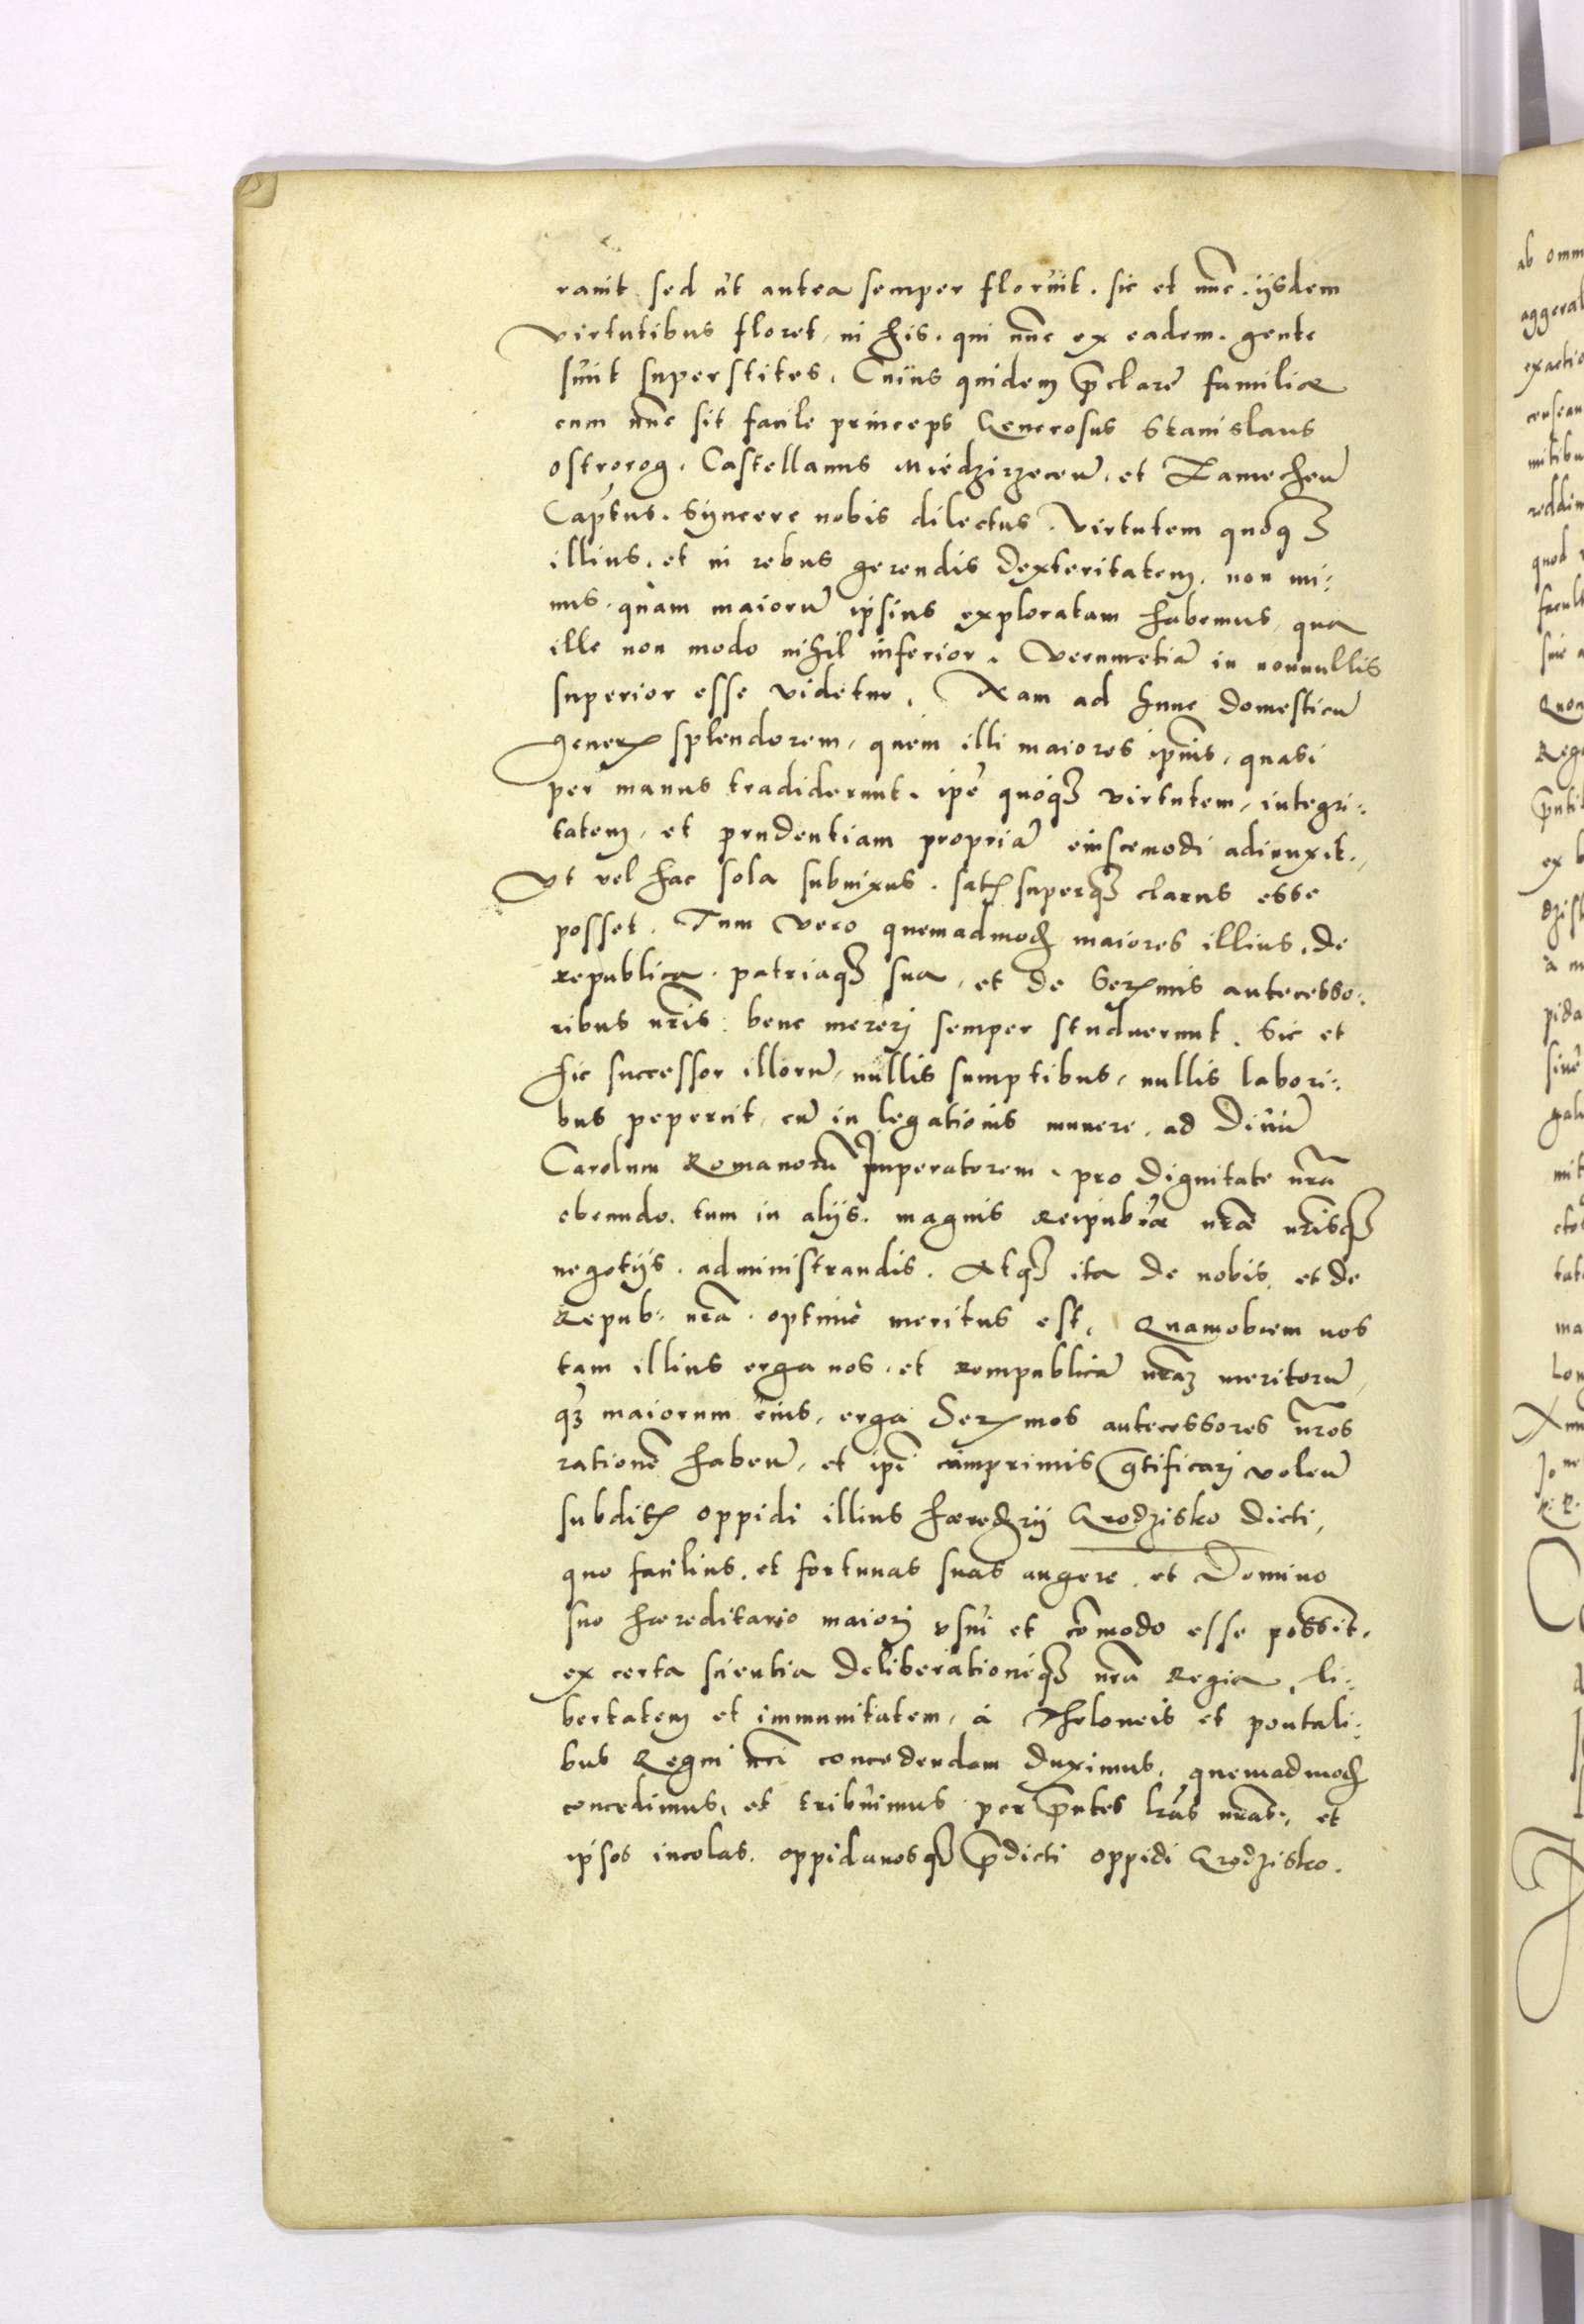 rauit sed ut antea semper floruit. sic et nūc. ijsdem
virtutibus floret, in his. qui nūc ex eadem. gente
sunt superstites. Cuius quidem p̄clare familiæ
cum nūc sit facile princeps Generosus Stanislaus
ostrorog. Castellanus Miedzirzeceñ. et
Captus. Syncere nobis dilectus. Virtutem quoq3
illius, et in rebus gerendis dexteritatem, non mi:
nus. quam maiorū ipsius exploratam habemus, qua
ille non modo nihil inferior. Verumetiā in nonnullis
superior esse videtur. Nam ad hunc domesticū
splendorem, quem illi maiores ipsius, quasi
per manus tradiderunt. ipē quoq3 virtutem, integri:
tatem, et prudentiam propriā eiuscemodi adiunxit.,
Vt vel hac sola subnixus. superq3 clarus esse
posset. Tum vero quemadmod maiores illius, de
republica. patriaq3 sua, et de antecesso:
ribus nr̄is: bene mererj semper studuerunt. Sic et
hic successor illorū, nullis sumptibus, nullis labori:
bus pepercit, cū in legationis munere, ad Diuū
Carolum Romanorū Imperatorem. pro dignitate nr̄a
obeundo. tum in alijs. magnis nr̄æ nr̄isq3
negotijs. administrandis. Atq3 ita de nobis, et de
Repub: nr̄a. optime meritus est, Quamobrem nos
tam illius erga nos. et rempublicā nr̄am meritorū,
q3 maiorum eius, erga antecessores nr̄os
rationē habeñ, et ipī inprimis gr̄tificarj voleñ
oppidi illius Grodzisko dicti,
quo facilius. et fortunas suas augere. et Domino
suo hæreditario maiorj vsui et cōmodo esse possint.
ex certa scientia deliberationeq3 nr̄a Regia, li:
bertatem et immunitatem, à Theloneis et pontali:
bus Regni nr̄i concedendam duximus, quemadmod
concedimus, et tribuimus per p̄ntes lr̄as nr̄as, et
ipsos incolas. oppidanosq3 p̄dicti oppidi Grodzisko.